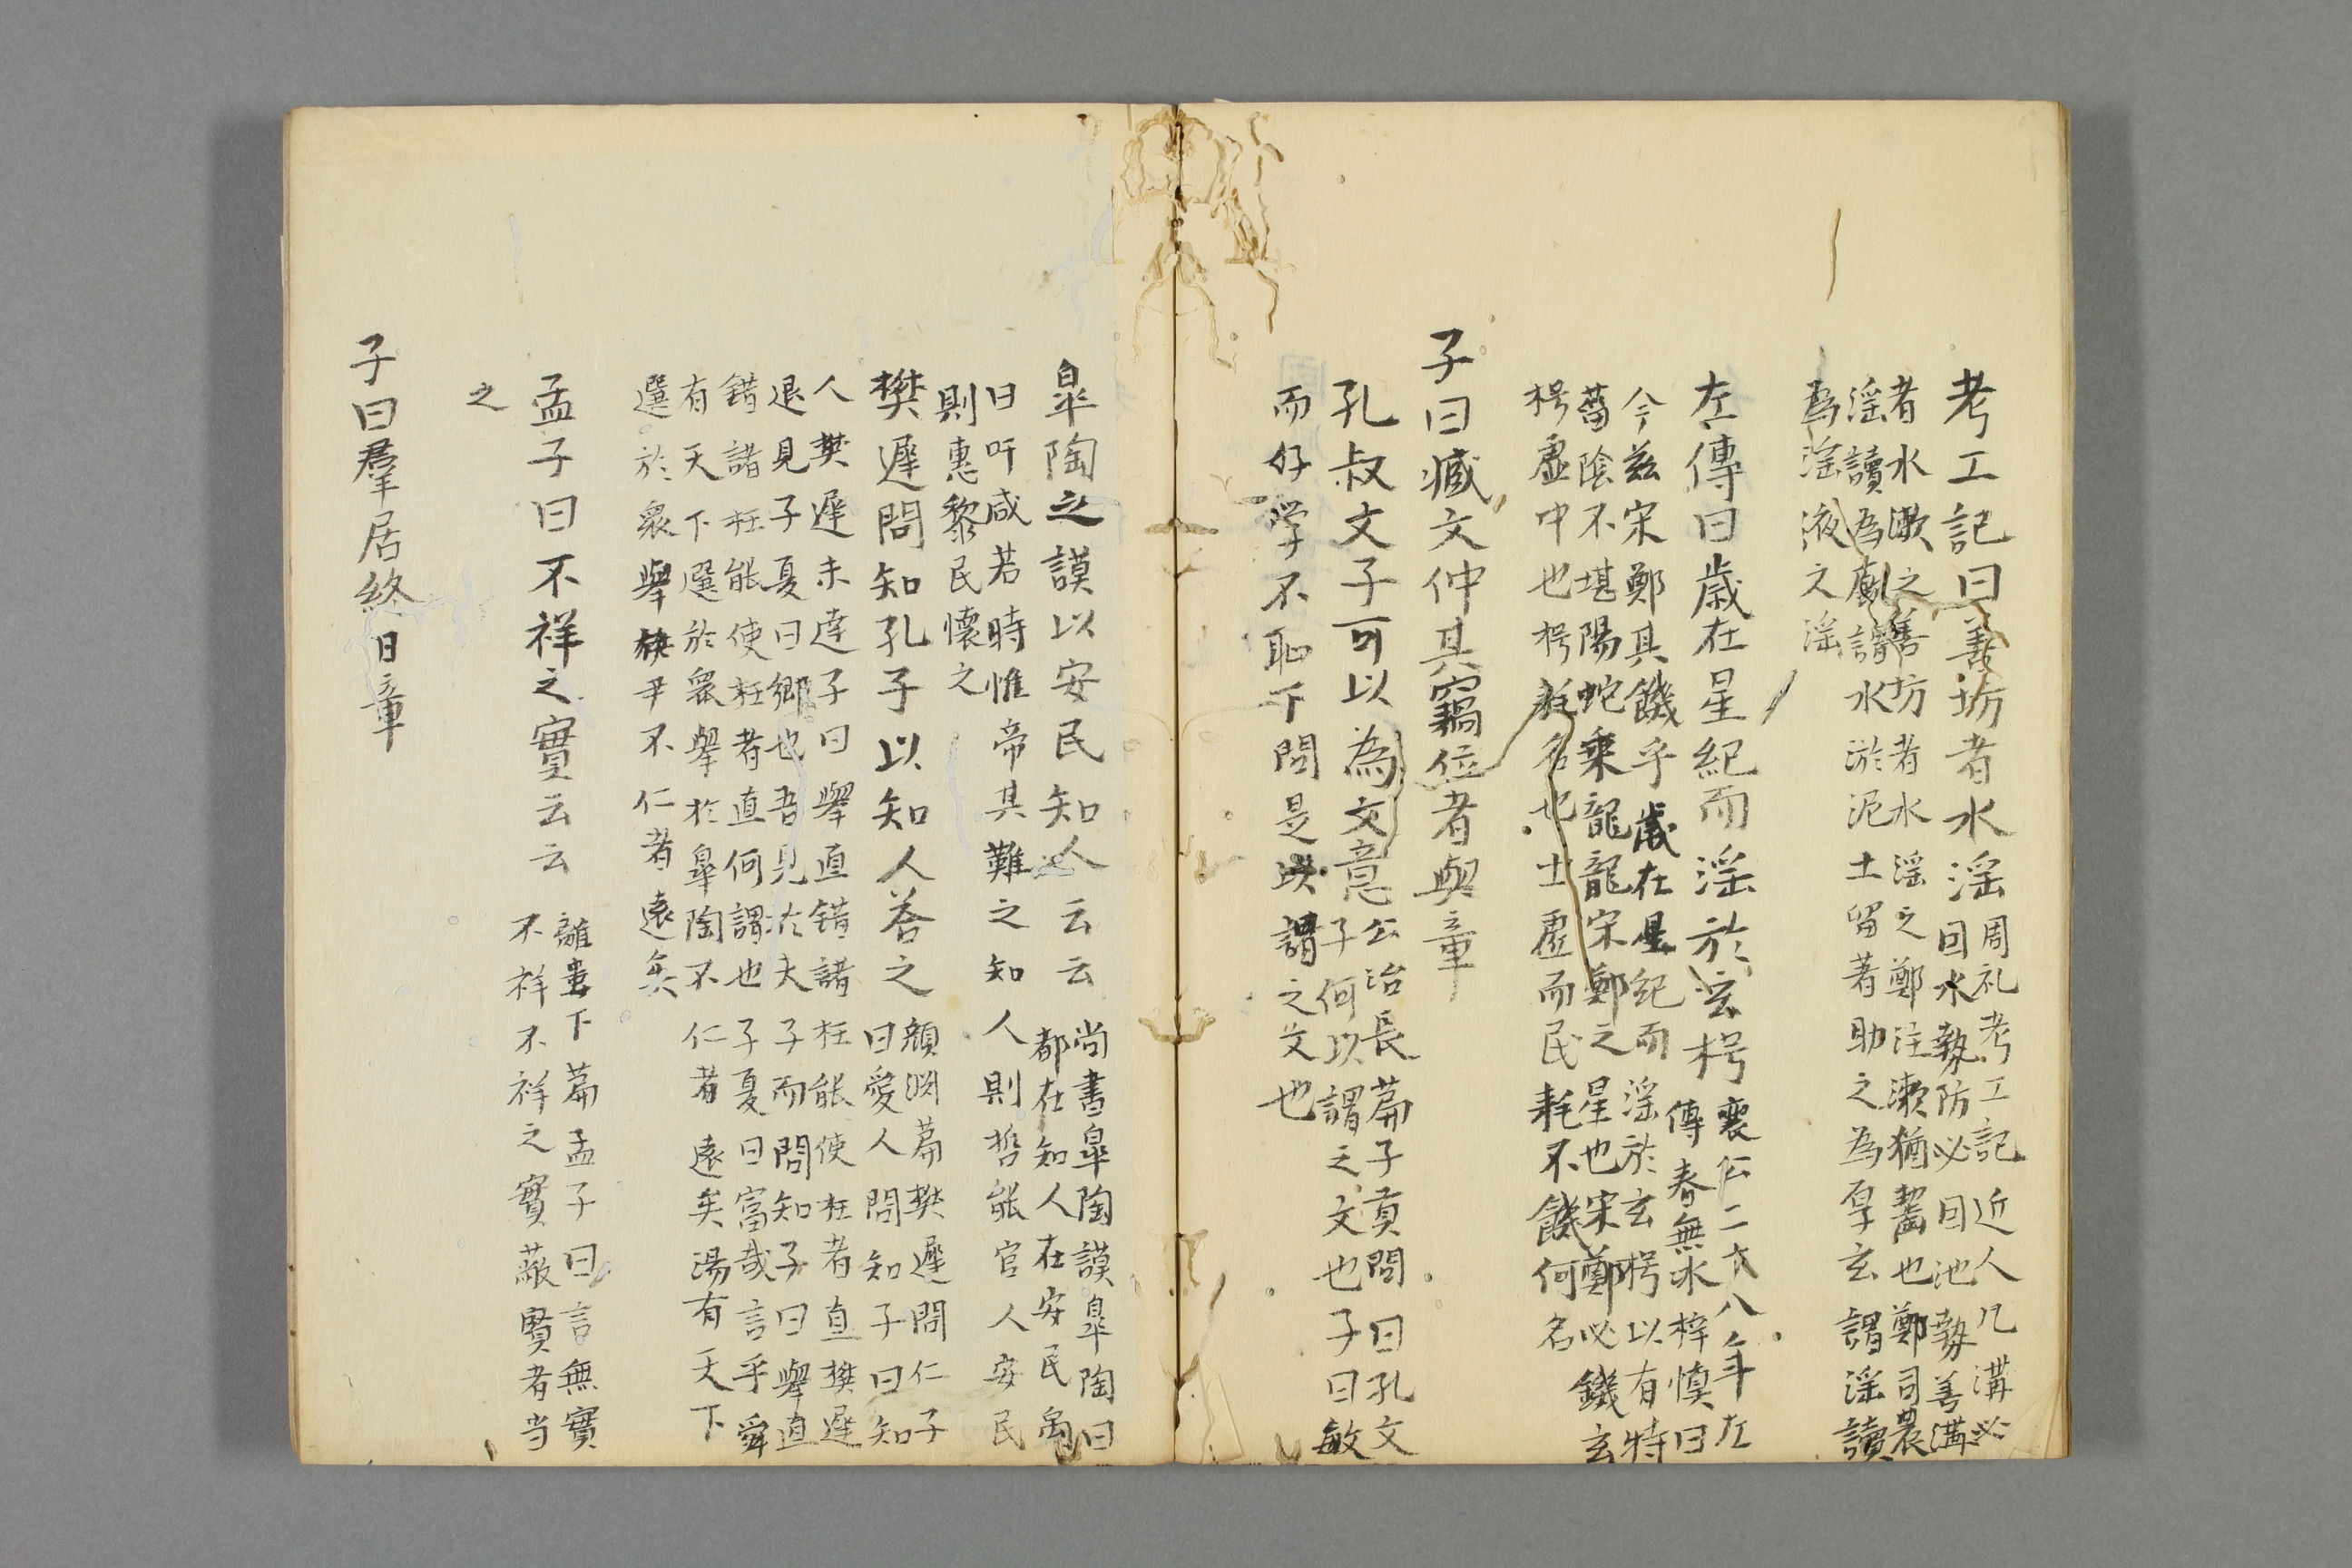 考工記曰善坊者水淫周礼考工記近人凡溝必
因水埶防必因池埶善溝
者水漱之善坊者水淫之鄭注漱猶齧也鄭司農
淫讀為廞謂水淤泥土留著助之為厚玄謂淫讀
為淫液之淫
左傳曰歳在星紀而淫於玄枵襄公二十八年左
傳春無冰梓慎曰
今茲宋鄭其饑乎歳在星紀而淫於玄枵以有時
菑陰不堪陽蛇乗龍龍宋鄭之星也宋鄭必饑玄
枵虚中也枵耗名也土虚而民耗不饑何名
子曰臧文仲其竊位者與章
孔叔文子可以為文意公冶長篇子貢問曰孔文
子何以謂之文也子曰敏
而好学不恥下問是以謂之文也
皐陶之謨以安民知人云云尚書皐陶謨皐陶曰
都在知人在安民禹
曰吁咸若時惟帝其難之知人則哲能官人安民
則惠黎民懐之
樊遲問知孔子以知人荅之顔渕篇樊遲問仁子
曰愛人問知子曰知
人樊遲未達子曰舉直錯諸枉能使枉者直樊遲
退見子夏曰郷也吾見於夫子而問知子曰舉直
錯諸枉能使枉者直何謂也子夏曰富哉言乎舜
有天下選於衆舉於皐陶不仁者遠矣湯有天下
選於衆舉 尹不仁者遠矣
孟子曰不祥之實云云離婁下篇孟子曰言無實
不祥不祥之實蔽賢者当
之
子曰羣居終日章